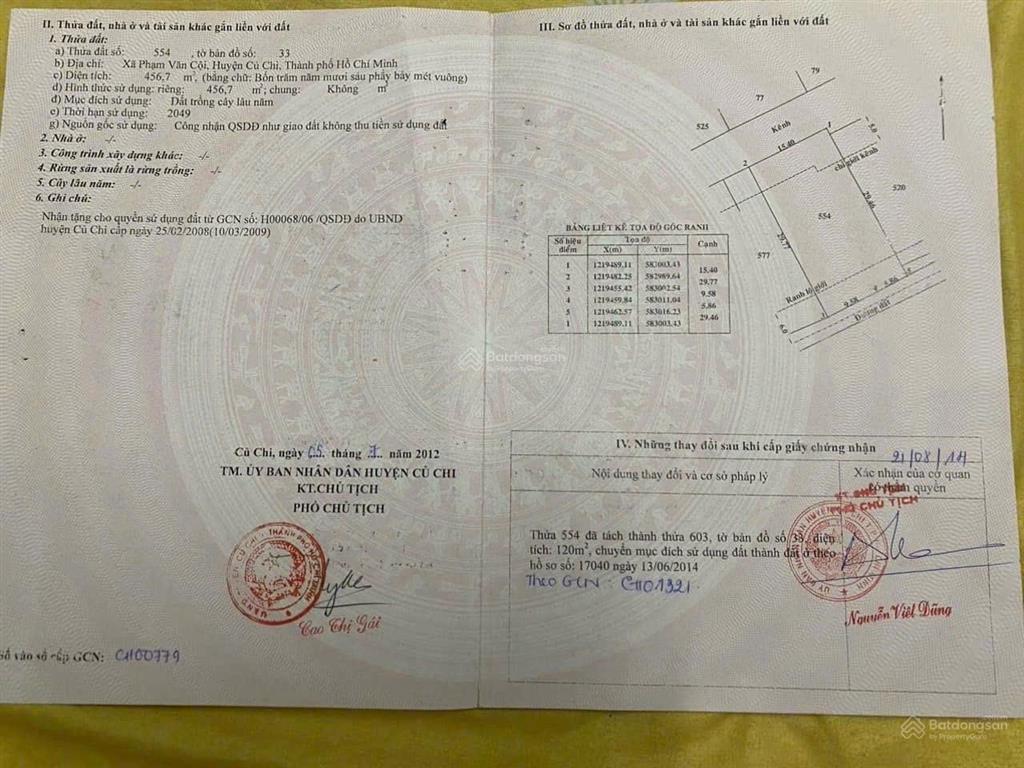 II. Thửa đất, nhà ở và tài sản khác gắn liền với đất
1. Thửa đất:
a) Thửa đất số: 554 , tờ bản đồ số: 33
b) Địa chỉ: Xã Phạm Văn Cội, Huyện Củ Chi, Thành phố Hồ Chí Minh
c) Diện tích: 456,7 m², (bằng chữ: Bốn trăm năm mươi sáu phẩy bảy mét vuông)
d) Hình thức sử dụng: riêng: 456,7 m²; chung: Không m²
đ) Mục đích sử dụng: Đất trồng cây lâu năm
e) Thời hạn sử dụng: 2049
g) Nguồn gốc sử dụng: Công nhận QSDĐ như giao đất không thu tiền sử dụng đất
2. Nhà ở: -/-
3. Công trình xây dựng khác: -/-
4. Rừng sản xuất là rừng trồng: -/-
5. Cây lâu năm: -/-
6. Ghi chú:
Nhận tặng cho quyền sử dụng đất từ GCN số: H00068/06 /QSDĐ do UBND
huyện Củ Chi cấp ngày 25/02/2008(10/03/2009)
Củ Chi, ngày 05 tháng 7 năm 2012
TM. ỦY BAN NHÂN DÂN HUYỆN CỦ CHI
KT.CHỦ TỊCH
PHÓ CHỦ TỊCH
Cao Thị Gái
Số vào sổ cấp GCN: CH00779
III. Sơ đồ thửa đất, nhà ở và tài sản khác gắn liền với đất
79
77
525
Kênh
1
5.0
15.40
2
chỉ giới kênh
520
29.46
554
29.77
577
Ranh lộ giới
9.58
5.86
6.0
3
Đường đất
BẢNG LIỆT KÊ TỌA ĐỘ GÓC RANH
Số hiệu điểm Tọa độ Cạnh
X(m) Y(m)
1 1219489.11 583003.43
15.40
2 1219482.25 582989.64
29.77
3 1219455.42 583002.54
9.58
4 1219459.84 583011.04
5.86
5 1219462.57 583016.23
29.46
1 1219489.11 583003.43
IV. Những thay đổi sau khi cấp giấy chứng nhận
21/08/14
Nội dung thay đổi và cơ sở pháp lý
Xác nhận của cơ quan
có thẩm quyền
KT. CHỦ TỊCH
PHÓ CHỦ TỊCH
Thửa 554 đã tách thành thửa 603, tờ bản đồ số 33, diện
tích: 120m², chuyển mục đích sử dụng đất thành đất ở theo
hồ sơ số: 17040 ngày 13/06/2014
Theo GCN: CH01321
Nguyễn Việt Dũng
Batdongsan
by PropertyGuru
Batdongsan
by PropertyGuru